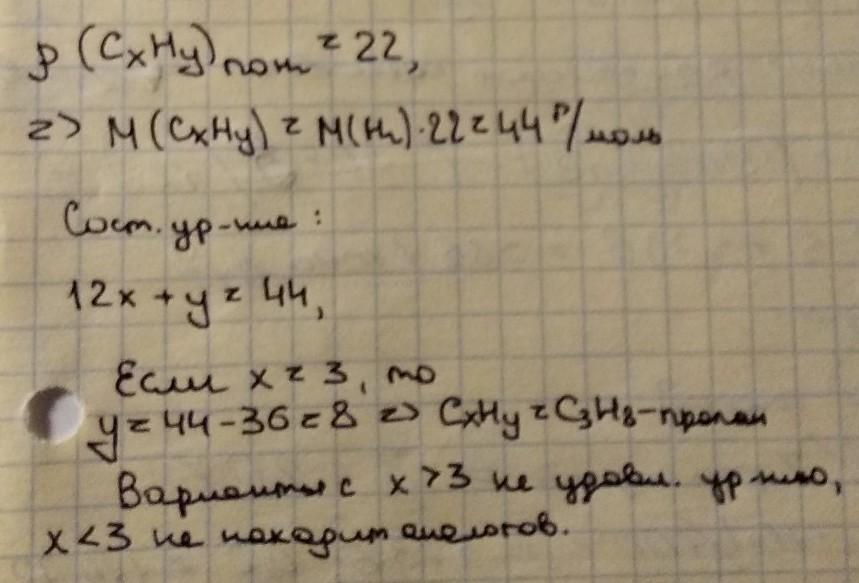 ρ (CxHy)пол = 22,
=> M (CxHy) = M(H₂)·22 = 44 г/моль
Сост. ур-ние :
12x + y = 44,
Если x = 3, то
y = 44 - 36 = 8 => CxHy = C₃H₈ - пропан
Варианты с x > 3 не удовл. ур-нию,
x < 3 не находит аналогов.